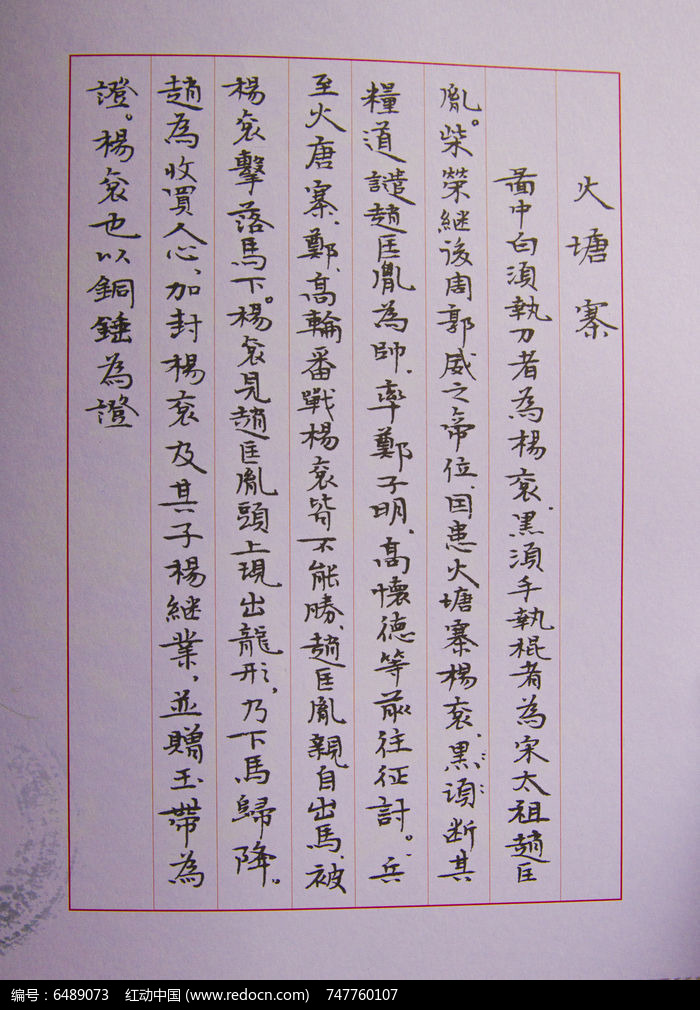 火塘寨
畵中白須執刀者為楊袞.黑須手執棍者為宋太祖趙匡
胤。柴榮継後周郭威之帝位、因患火塘寨楊袞、黑須断其
糧道譴趙匡胤為帥.率鄭子明.高懷德等前往征討。兵
至火唐寨.鄭、高輪番戰楊袞皆不能勝、趙匡胤親自出馬、被
楊袞擊落馬下。楊袞見趙匡胤頭上現出龍形,乃下馬歸降。
趙為收買人心、加封楊袞及其子楊継業,並贈玉帶為
證。楊袞也以銅錘為證
编号：6489073 红动中国 (www.redocn.com) 747760107